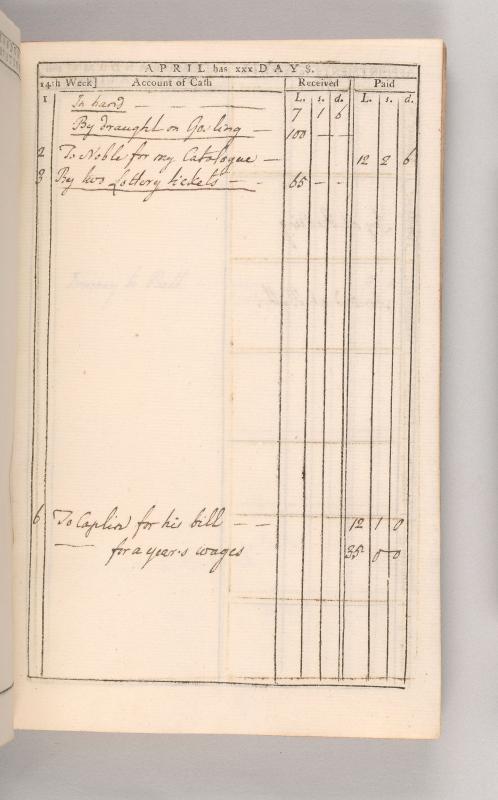 APRIL has xxx DAYS.
14th Week] Account of Cash Received Paid
L. s. d. L. s. d.
1 In hand — — — — 7 1 6
By draught on Gosling — 100 — —
2 To Noble for my Catalogue — 12 2 6
3 By two Lottery tickets — — 65 — —
6 To Caplin for his bill — — 12 1 0
— for a year's wages 35 0 0